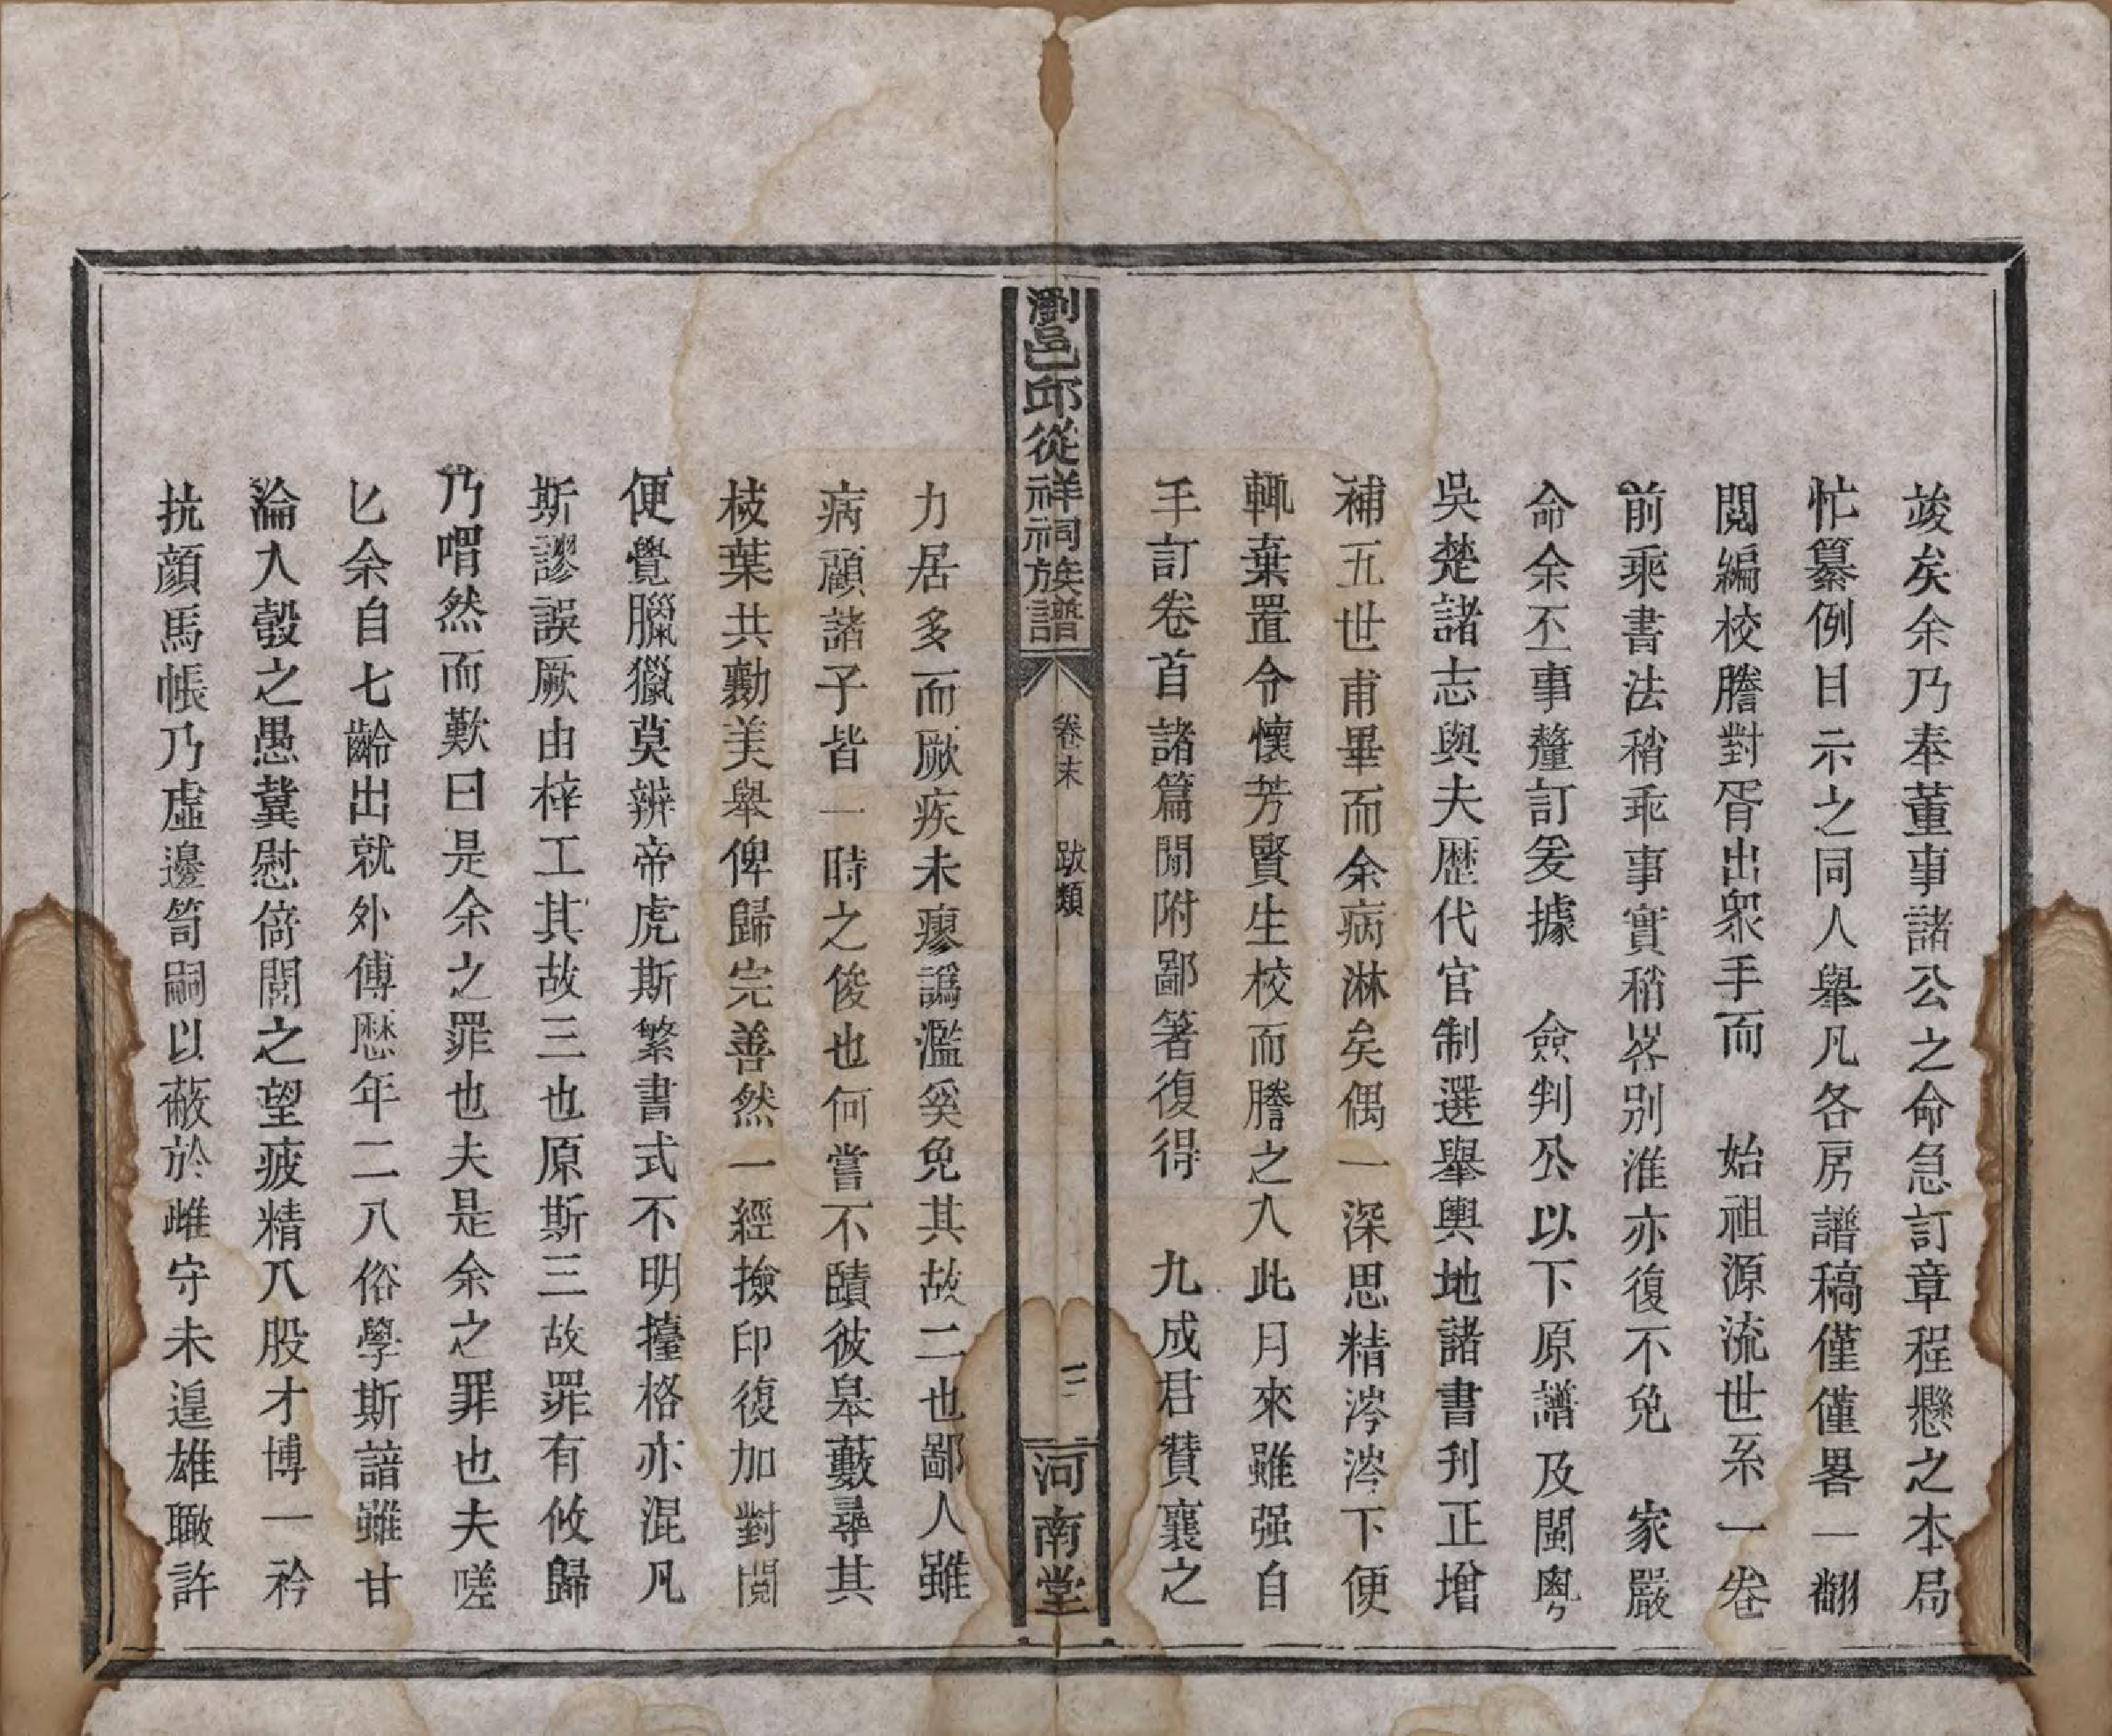 竣矣余乃奉董事諸公之命急訂章程懸之本局
忙纂例目示之同人舉凡各房譜稿僅僅畧一翻
閱編校謄對胥出衆手而　始祖源流世系一卷
前乘書法稍乖事實稍畧別淮亦復不免　家嚴
命余丕事釐訂爰據　僉判公以下原譜及閩粵
吳楚諸志與夫歷代官制選舉輿地諸書刋正增
補五世甫畢而余病淋矣偶一深思精涔涔下便
輒棄置令懷芳賢生校而謄之入此月來雖强自
手訂卷首諸篇間附鄙箸復得　九成君贊襄之
瀏邑邱從祥祠族譜
卷末　跋類
三
河南堂
力居多而厥疾未瘳譌濫奚免其故二也鄙人雖
病顧諸子皆一時之俊也何嘗不賾彼臯藪尋其
棱葉共勷美舉俾歸完善然一經撿印復加對閱
便覺臘獵莫辨帝虎斯繁書式不明擡格亦混凡
斯謬誤厥由梓工其故三也原斯三故罪有攸歸
乃喟然而歎曰是余之罪也夫是余之罪也夫嗟
乚余自七齡出就外傅歷年二八俗學斯諳雖甘
淪入彀之愚冀慰倚閭之望疲精八股才博一衿
抗顏馬帳乃虛邊笥嗣以蔽於雌守未遑雄瞰許